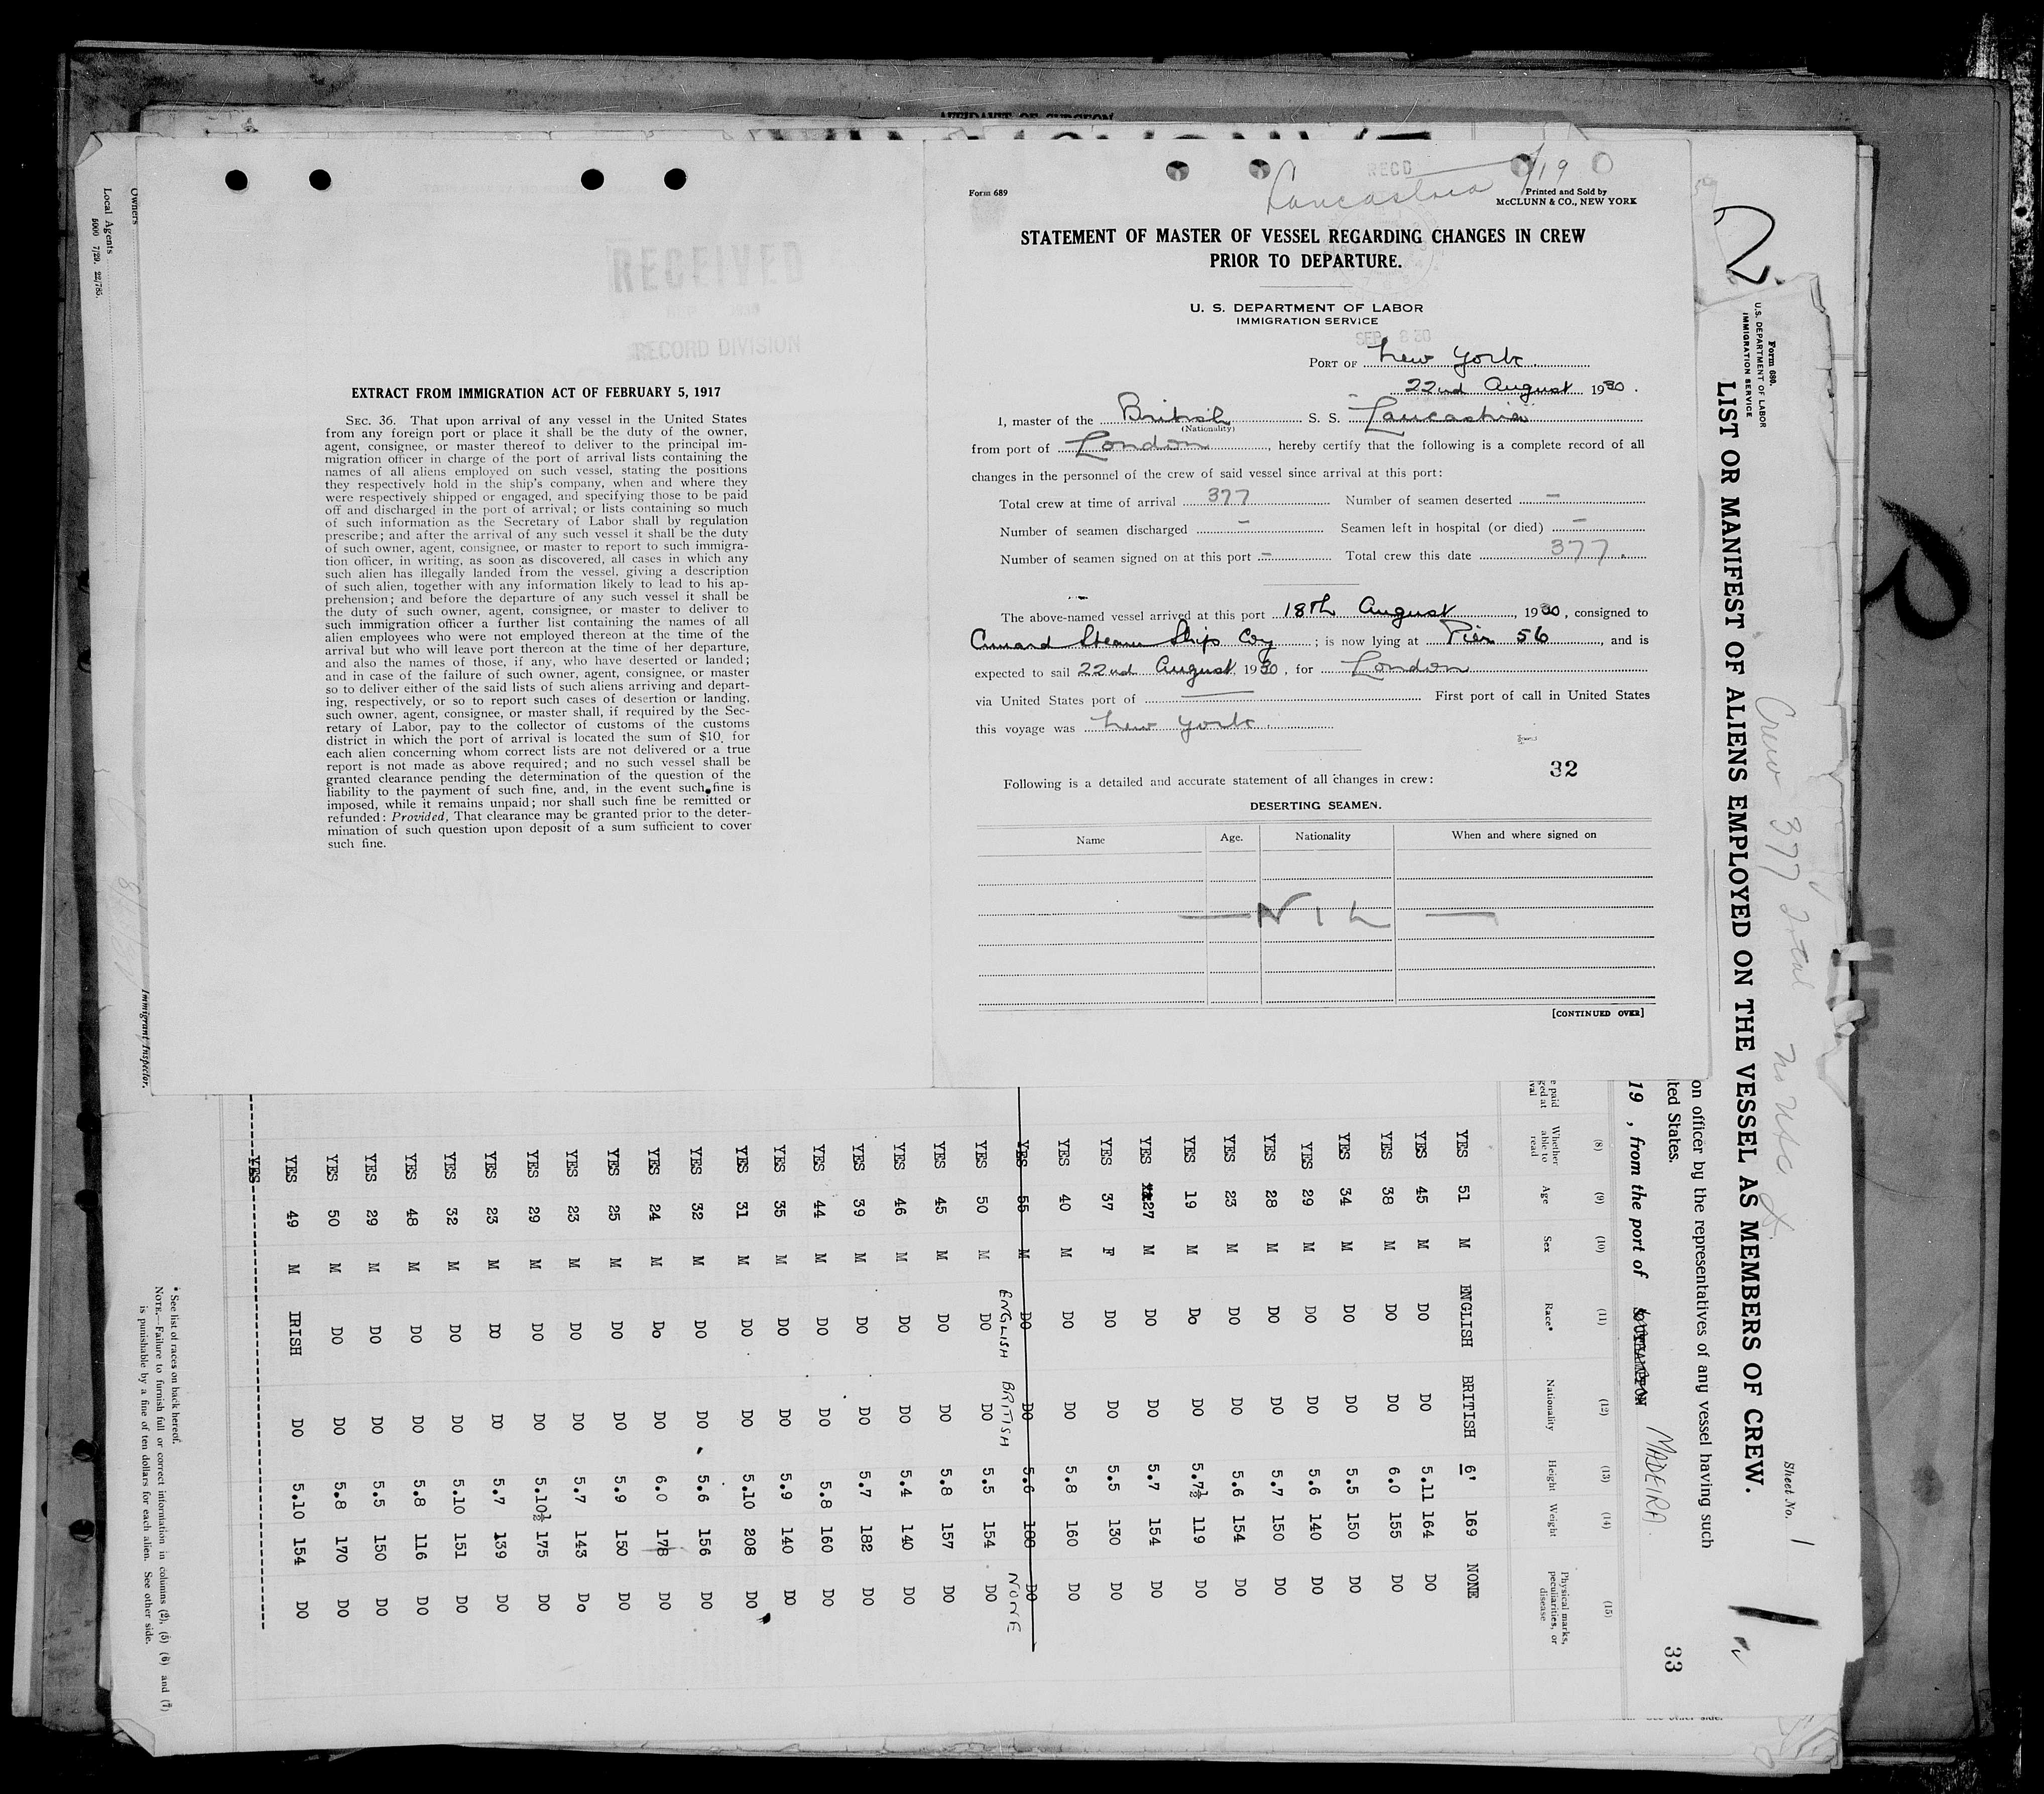 AFFIDAVIT OF SURGEON
Owners
Local Agents
5000 7/29. 22/785.
RECEIVED
RECORD DIVISION
EXTRACT FROM IMMIGRATION ACT OF FEBRUARY 5, 1917
SEC. 36. That upon arrival of any vessel in the United States
from any foreign port or place it shall be the duty of the owner,
agent, consignee, or master thereof to deliver to the principal im-
migration officer in charge of the port of arrival lists containing the
names of all aliens employed on such vessel, stating the positions
they respectively hold in the ship's company, when and where they
were respectively shipped or engaged, and specifying those to be paid
off and discharged in the port of arrival; or lists containing so much
of such information as the Secretary of Labor shall by regulation
prescribe; and after the arrival of any such vessel it shall be the duty
of such owner, agent, consignee, or master to report to such immigra-
tion officer, in writing, as soon as discovered, all cases in which any
such alien has illegally landed from the vessel, giving a description
of such alien, together with any information likely to lead to his ap-
prehension; and before the departure of any such vessel it shall be
the duty of such owner, agent, consignee, or master to deliver to
such immigration officer a further list containing the names of all
alien employees who were not employed thereon at the time of the
arrival but who will leave port thereon at the time of her departure,
and also the names of those, if any, who have deserted or landed;
and in case of the failure of such owner, agent, consignee, or master
so to deliver either of the said lists of such aliens arriving and depart-
ing, respectively, or so to report such cases of desertion or landing,
such owner, agent, consignee, or master shall, if required by the Sec-
retary of Labor, pay to the collector of customs of the customs
district in which the port of arrival is located the sum of $10. for
each alien concerning whom correct lists are not delivered or a true
report is not made as above required; and no such vessel shall be
granted clearance pending the determination of the question of the
liability to the payment of such fine, and, in the event such fine is
imposed, while it remains unpaid; nor shall such fine be remitted or
refunded: Provided, That clearance may be granted prior to the deter-
mination of such question upon deposit of a sum sufficient to cover
such fine.
Immigrant Inspector.
RECD
Lancastria
Form 689
Printed and Sold by
McCLUNN & CO., NEW YORK
STATEMENT OF MASTER OF VESSEL REGARDING CHANGES IN CREW
PRIOR TO DEPARTURE.
U. S. DEPARTMENT OF LABOR
IMMIGRATION SERVICE
SEP 8 30
PORT OF New York
22nd August 1930.
I, master of the British S. S. Lancastria
(Nationality)
from port of London, hereby certify that the following is a complete record of all
changes in the personnel of the crew of said vessel since arrival at this port:
Total crew at time of arrival 377 Number of seamen deserted -
Number of seamen discharged - Seamen left in hospital (or died) -
Number of seamen signed on at this port - Total crew this date 377.
The above-named vessel arrived at this port 18th August, 1930, consigned to
Cunard Steam Ship Coy; is now lying at Pier 56, and is
expected to sail 22nd August, 1930, for London
via United States port of First port of call in United States
this voyage was New York.
32
Following is a detailed and accurate statement of all changes in crew:
DESERTING SEAMEN.
Name Age. Nationality When and where signed on
— NIL —
[CONTINUED OVER]
Form 680.
U.S. DEPARTMENT OF LABOR
IMMIGRATION SERVICE
Sheet No. 1
Crew 377 Total
LIST OR MANIFEST OF ALIENS EMPLOYED ON THE VESSEL AS MEMBERS OF CREW.
on officer by the representatives of any vessel having such
ted States.
33
19 , from the port of SOUTHAMPTON MADEIRA.
(8) (9) (10) (11) (12) (13) (14) (15)
e paid
ged at
ival
Whether able to read Age Sex Race* Nationality Height Weight Physical marks, peculiarities, or disease
YES 51 M ENGLISH BRITISH 6' 169 NONE
YES 45 M DO DO 5.11 164 DO
YES 38 M DO DO 6.0 155 DO
YES 34 M DO DO 5.5 150 DO
YES 29 M DO DO 5.6 140 DO
YES 28 M DO DO 5.7 150 DO
YES 23 M DO DO 5.6 154 DO
YES 19 M Do DO 5.7½ 119 DO
YES 27 M DO DO 5.7 154 DO
YES 37 F DO DO 5.5 130 DO
YES 40 M DO DO 5.8 160 DO
YES 55 M DO DO 5.6 188 DO
ENGLISH BRITISH NONE
YES 50 M DO DO 5.5 154 DO
YES 45 M DO DO 5.8 157 DO
YES 46 M DO DO 5.4 140 DO
YES 39 M DO DO 5.7 182 DO
YES 44 M DO DO 5.8 160 DO
YES 35 M DO DO 5.9 140 DO
YES 31 M DO DO 5.10 208 DO
YES 32 M DO DO 5.6 156 DO
YES 24 M Do DO 6.0 178 DO
YES 25 M DO DO 5.9 150 DO
YES 23 M DO DO 5.7 143 Do
YES 29 M DO DO 5.10½ 175 DO
YES 23 M DO DO 5.7 139 DO
YES 32 M DO DO 5.10 151 DO
YES 48 M DO DO 5.8 116 DO
YES 29 M DO DO 5.5 150 DO
YES 50 M DO DO 5.8 170 DO
YES 49 M IRISH DO 5.10 154 DO
YES
* See list of races on back hereof.
NOTE.—Failure to furnish full or correct information in columns (2), (5) (6) and (7)
is punishable by a fine of ten dollars for each alien. See other side.